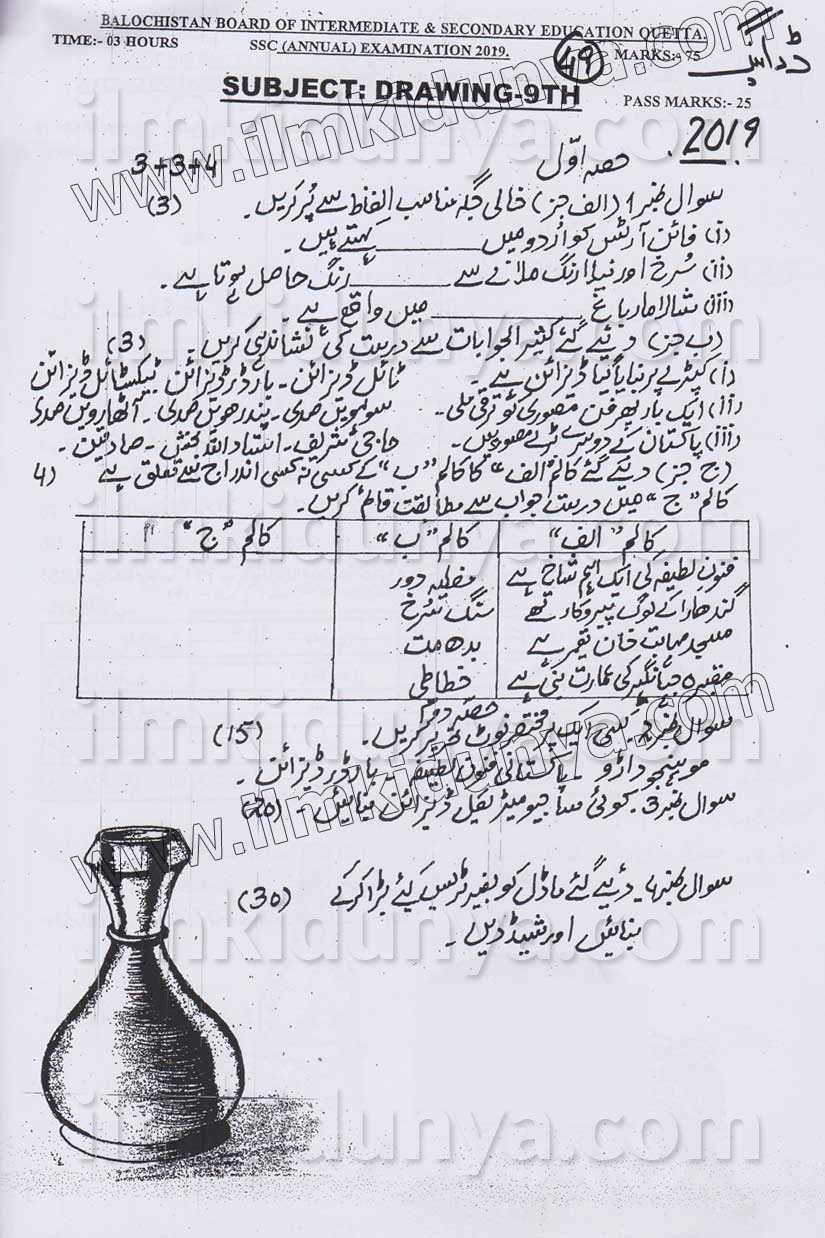 BALOCHISTAN BOARD OF INTERMEDIATE & SECONDARY EDUCATION QUETTA.
TIME:- 03 HOURS SSC (ANNUAL) EXAMINATION 2019. 49 MARKS:- 75
SUBJECT: DRAWING-9TH PASS MARKS:- 25
2019
حصہ اوّل 3+3+4
سوال نمبر 1 (الف جز) خالی جگہ مناسب الفاظ سے پُر کریں۔ (3)
(i) فائن آرٹس کو اُردو میں ________ کہتے ہیں۔
(ii) سُرخ اور نیلا رنگ ملانے سے ________ رنگ حاصل ہوتا ہے۔
(iii) شالامار باغ ________ میں واقع ہے۔
(ب جز) دیئے گئے کثیر الجوابات سے درست کی نشاندہی کریں۔ (3)
(i) کپڑے پر بنایا گیا ڈیزائن ہے۔ ٹائل ڈیزائن - بارڈر ڈیزائن - ٹیکسٹائل ڈیزائن
(ii) ایک بار پھر فن مصوری کو ترقی ملی۔ سولہویں صدی - پندرھویں صدی - اٹھارویں صدی
(iii) پاکستان کے دوسرے بڑے مصور ہیں۔ حاجی شریف - استاد اللہ بخش - صادقین -
(ج جز) دیئے گئے کالم "الف" کا کالم "ب" کے کسی نہ کسی اندراج سے تعلق ہے (4
کالم "ج" میں درست جواب سے مطابقت قائم کریں۔
کالم "الف" کالم "ب" کالم "ج"
فنونِ لطیفہ کی ایک اہم شاخ ہے مغلیہ دور
گندھارا کے لوگ پیروکار تھے سنگ سُرخ
مسجد مہابت خان تعمیر ہے بدھ مت
مقبرہ جہانگیر کی عمارت بنی ہے خطاطی
حصہ دوم
سوال نمبر 2- کسی ایک پر مختصر نوٹ تحریر کریں۔ (15)
موہنجوداڑو - پاکستانی فنون لطیفہ - بارڈر ڈیزائن -
سوال نمبر 3- کوئی سا جیومیٹریکل ڈیزائن بنائیں - (20)
سوال نمبر 4- دیئے گئے ماڈل کو بغیر ٹریس کیئے بڑا کر کے (30)
بنائیں اور شیڈ دیں -
www.ilmkidunya.com
www.ilmkidunya.com
ilmkidunya.com
ilmkidunya.com
ilmkidunya.com
ilmkidunya.com
ilmkidunya.com
ilmkidunya.com